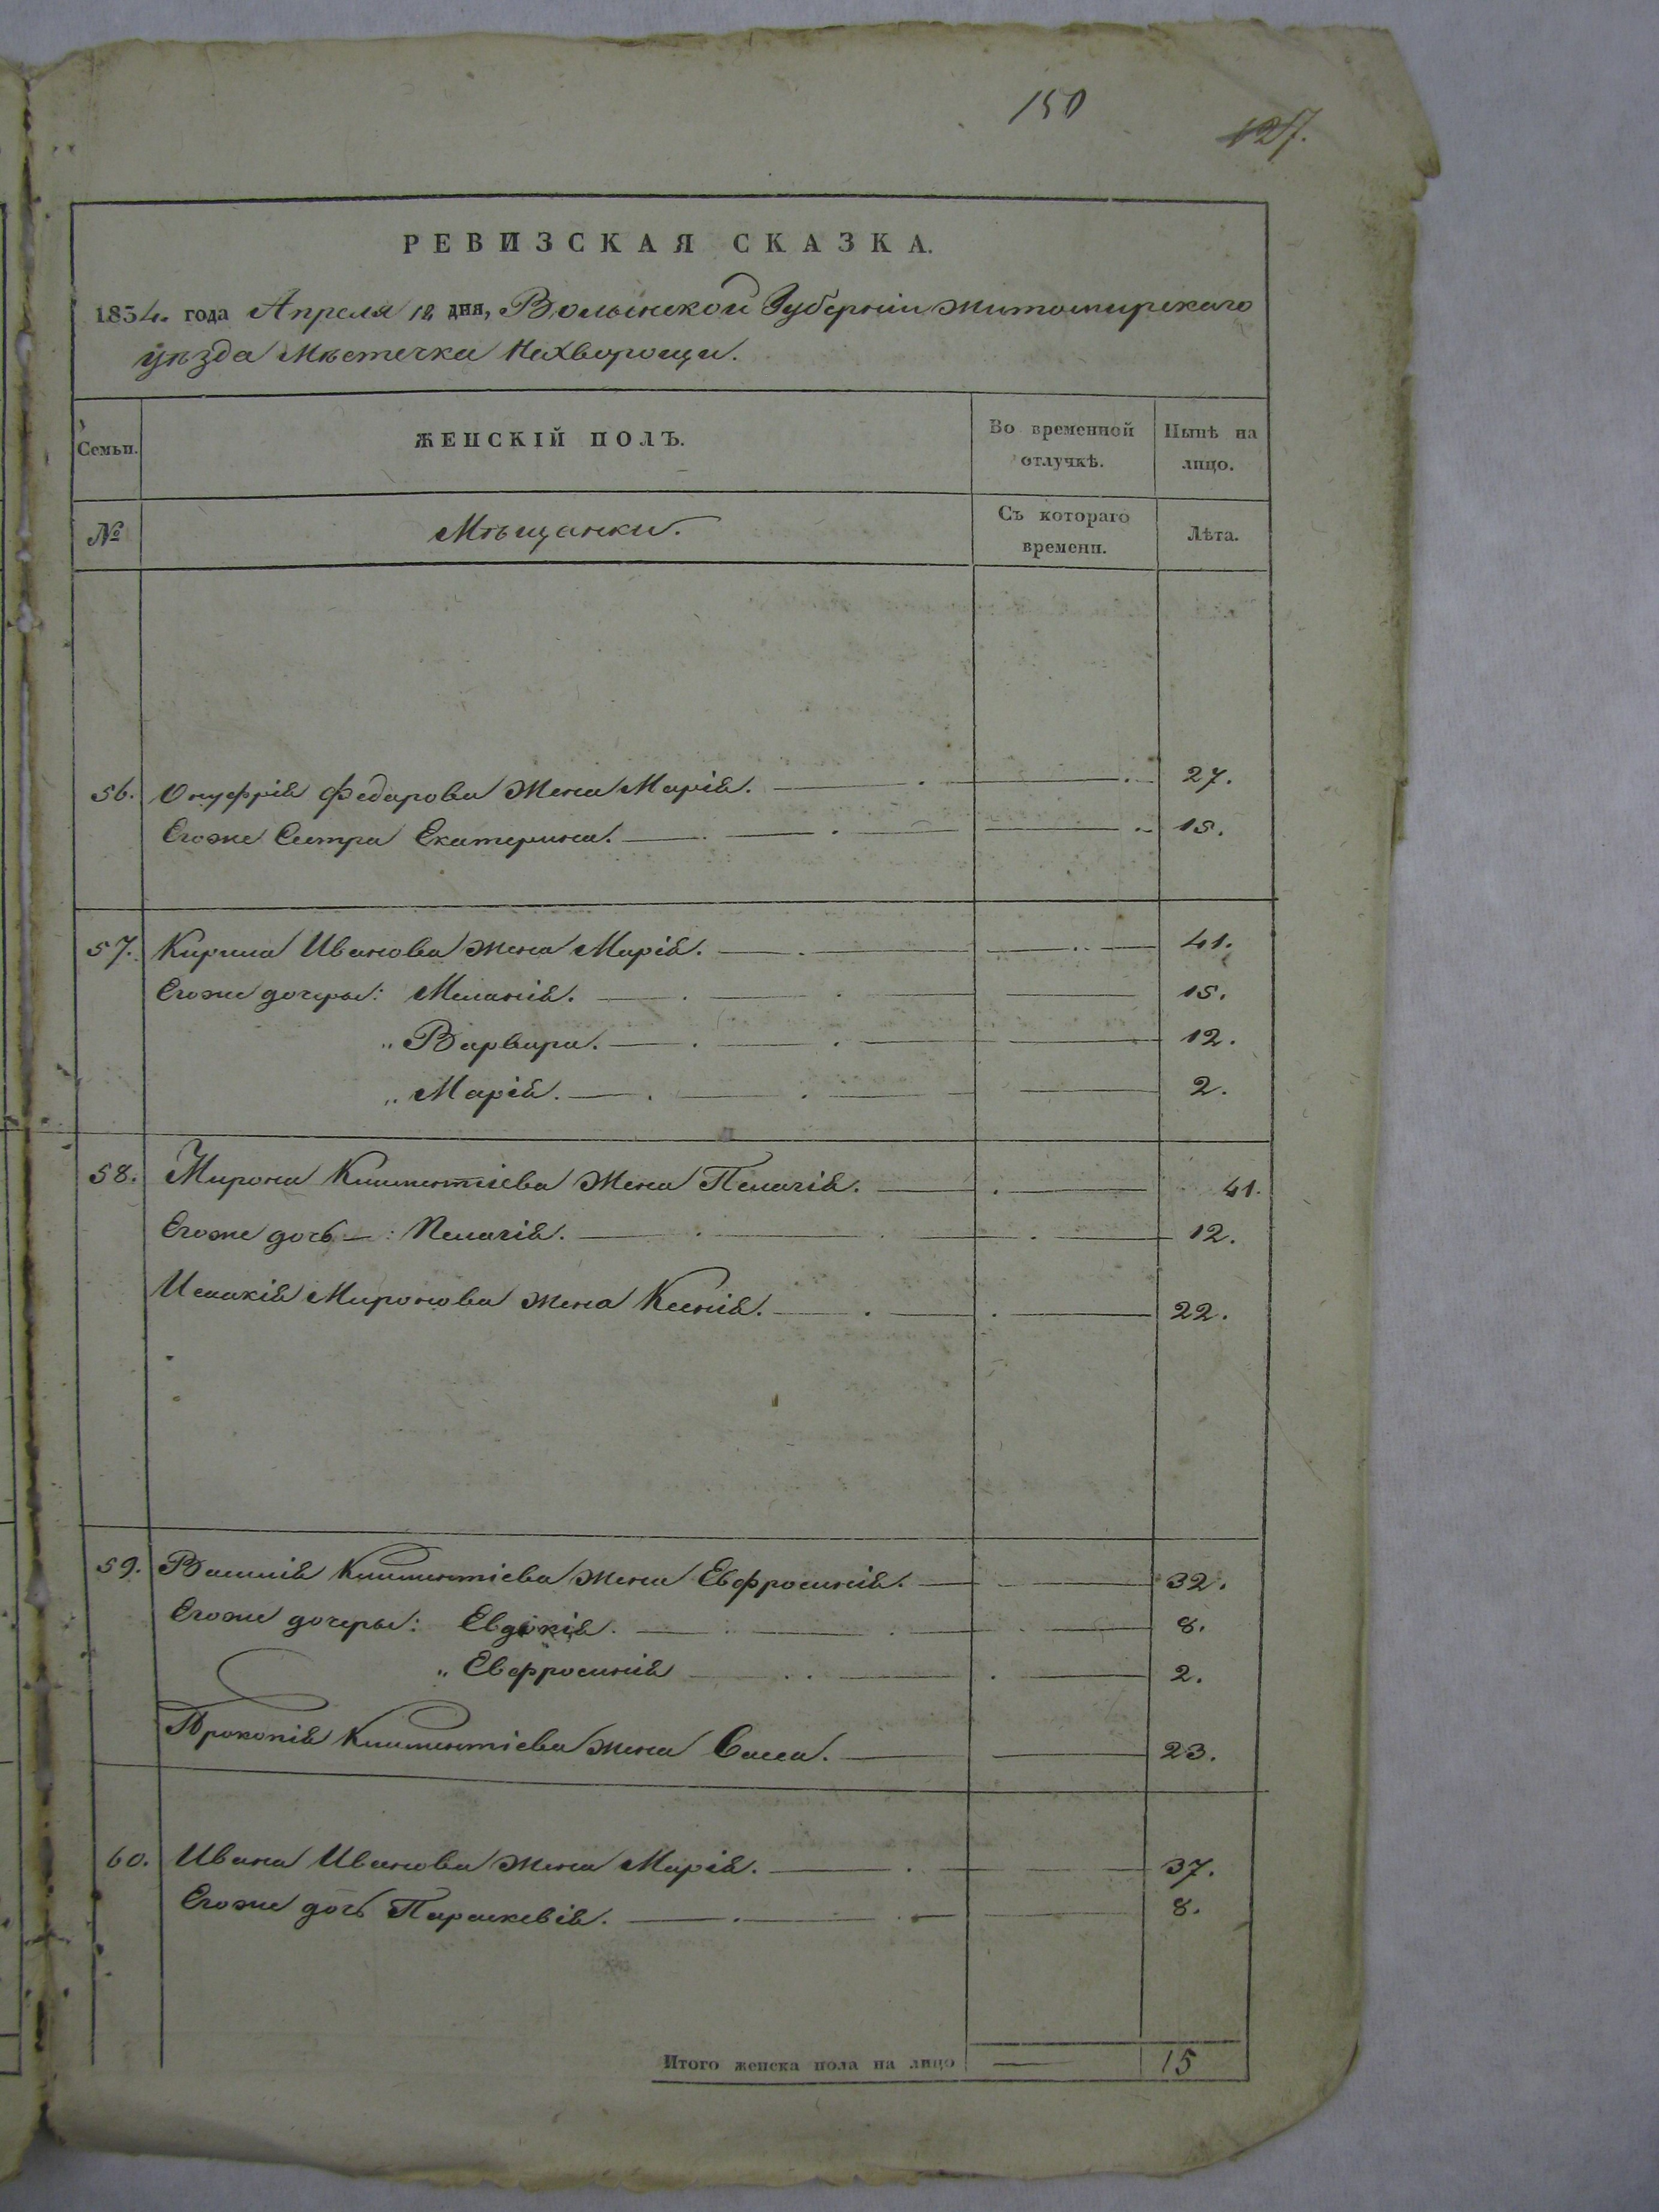 150
127.
РЕВИЗСКАЯ СКАЗКА.
1834. года Апреля 12 дня, Волынской Губерніи Житомирскаго
уѣзда Мѣстечка Нехворощи.
Семьи. ЖЕНСКІЙ ПОЛЪ. Во временной отлучкѣ. Нынѣ на лицо.
№ Мѣщанки. Съ котораго времени. Лѣта.
56. Онуфрія Федарова жена Марія. 27.
Егоже Сестра Екатерина. 15.
57. Кирила Иванова жена Марія. 41.
Егоже дочеры: Меланія. 15.
„ Варвара. 12.
„ Марія. 2.
58. Мирона Климентіева жена Пелагія. 41.
Егоже дочь: Пелагія. 12.
Исакія Миронова жена Ксенія. 22.
59. Василія Климентіева жена Евфросинія. 32.
Егоже дочеры: Евдокія. 8.
„ Евфросинія 2.
Прокопія Климентіева жена 23.
60. Ивана Иванова жена Марія. 37.
Егоже дочь Параскевія. 8.
Итого женска пола на лицо 15